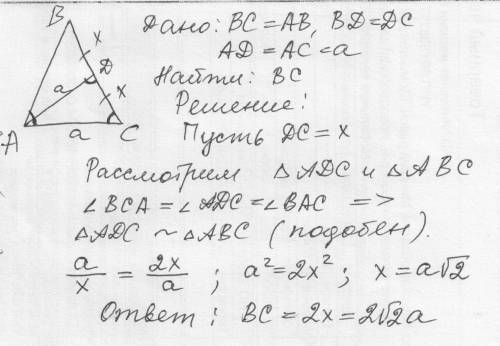 B
x
D
a
x
A
a
C
Дано: BC = AB, BD = DC
AD = AC = a
Найти: BC
Решение:
Пусть DC = x
Рассмотрим △ADC и △ABC
∠BCA = ∠ADC = ∠BAC =>
△ADC ~ △ABC (подобен).
a/x = 2x/a ; a² = 2x² ; x = a√2
Ответ: BC = 2x = 2√2a